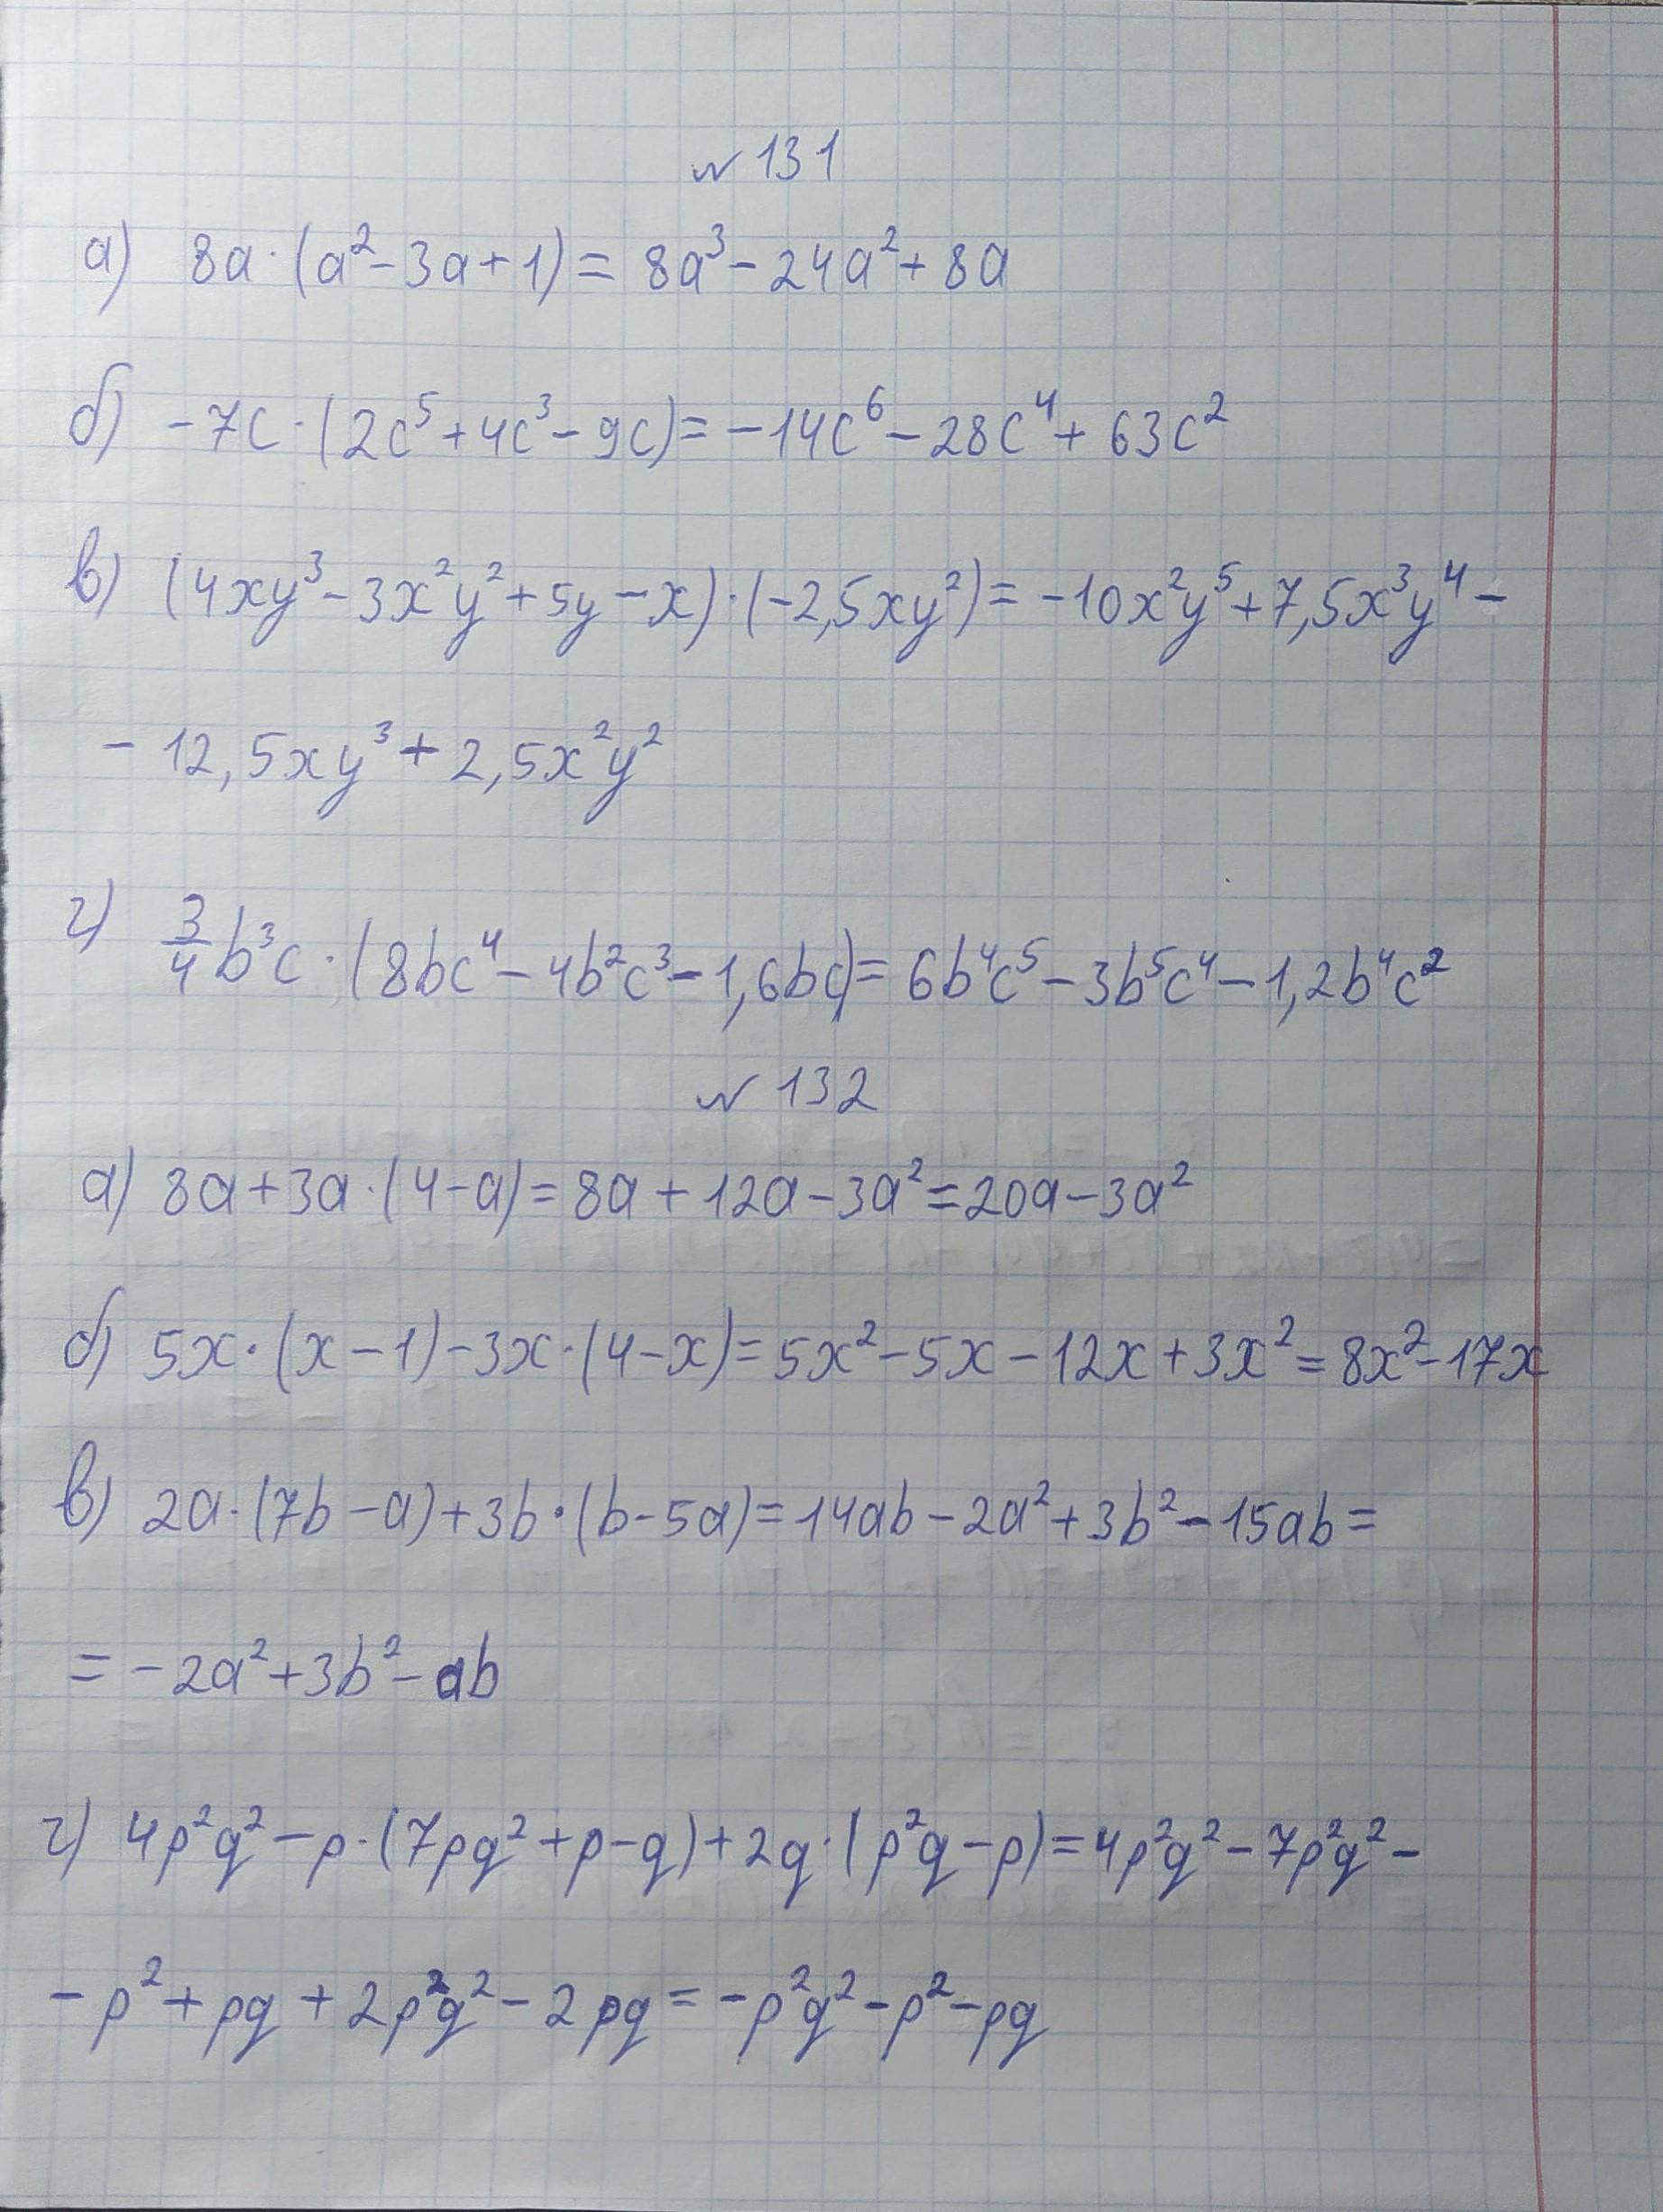 №131
а) 8a · (a² - 3a + 1) = 8a³ - 24a² + 8a
б) -7c · (2c⁵ + 4c³ - 9c) = -14c⁶ - 28c⁴ + 63c²
в) (4xy³ - 3x²y² + 5y - x) · (-2,5xy²) = -10x²y⁵ + 7,5x³y⁴ -
- 12,5xy³ + 2,5x²y²
г) 3/4 b³c · (8bc⁴ - 4b²c³ - 1,6bc) = 6b⁴c⁵ - 3b⁵c⁴ - 1,2b⁴c²
№132
а) 8a + 3a · (4 - a) = 8a + 12a - 3a² = 20a - 3a²
б) 5x · (x - 1) - 3x · (4 - x) = 5x² - 5x - 12x + 3x² = 8x² - 17x
в) 2a · (7b - a) + 3b · (b - 5a) = 14ab - 2a² + 3b² - 15ab =
= -2a² + 3b² - ab
г) 4p²q² - p · (7pq² + p - q) + 2q · (p²q - p) = 4p²q² - 7p²q² -
- p² + pq + 2p²q² - 2pq = -p²q² - p² - pq